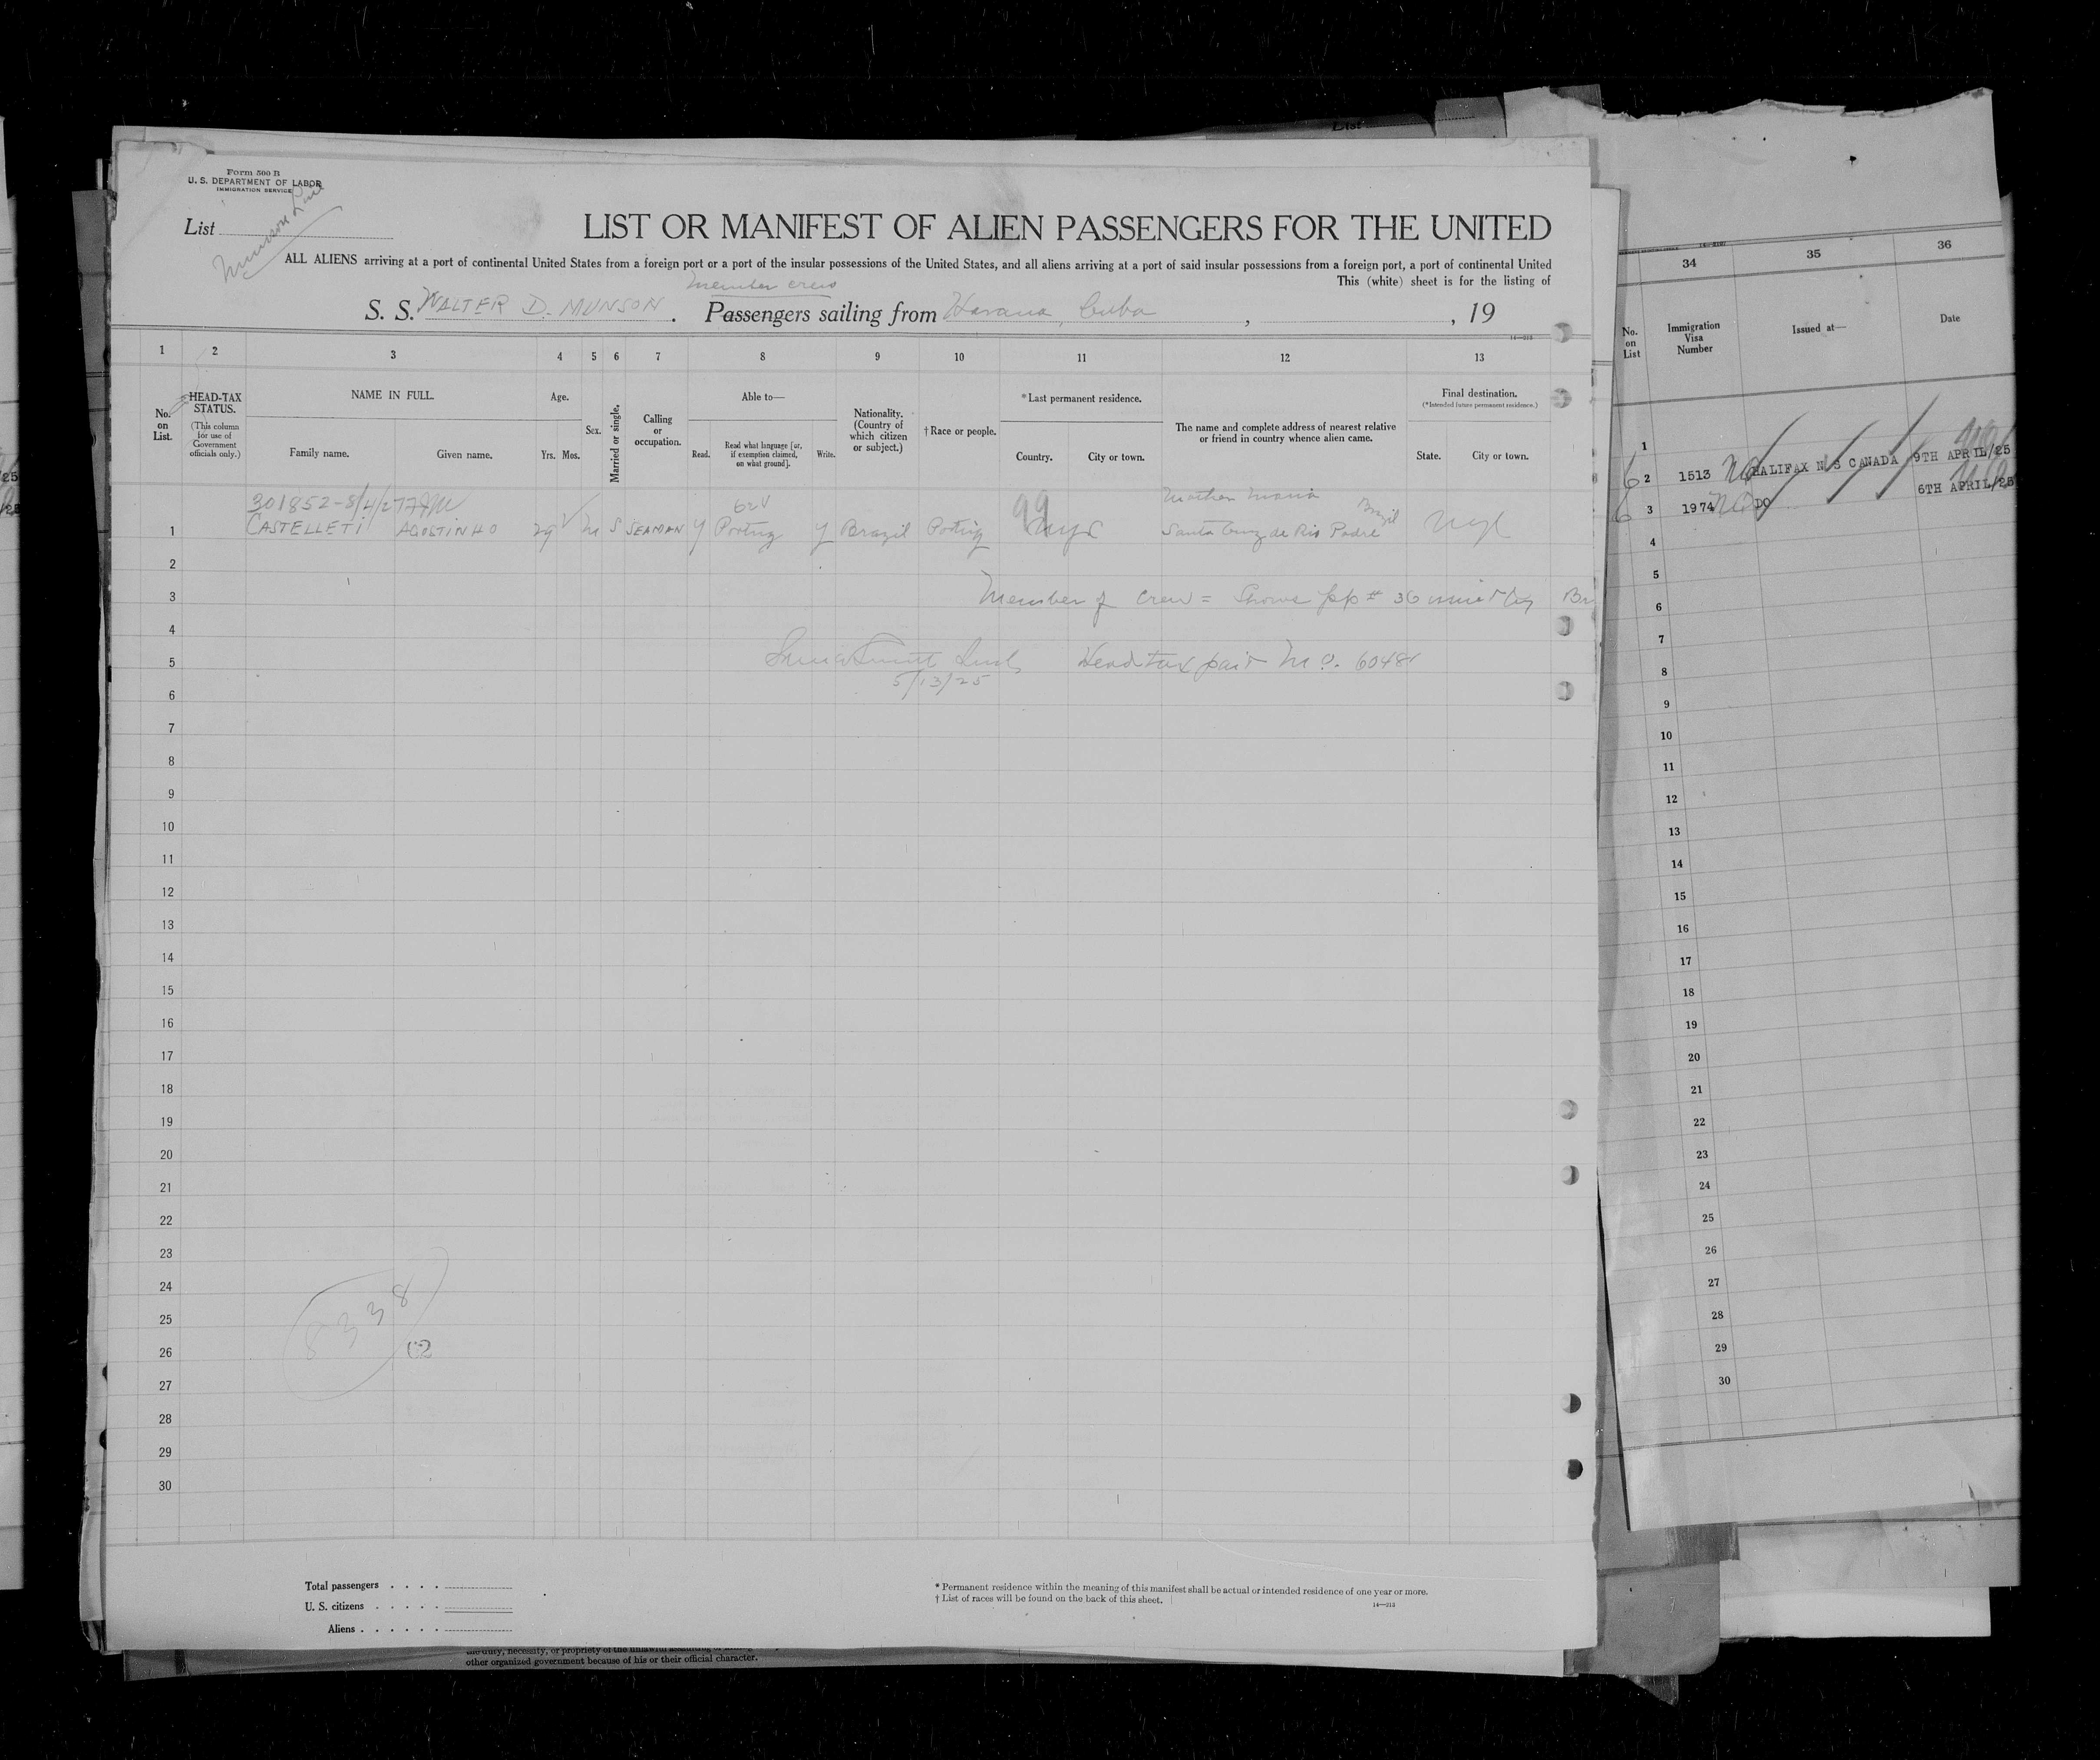 List
Form 500 B
U. S. DEPARTMENT OF LABOR
IMMIGRATION SERVICE
Munson Line
List
LIST OR MANIFEST OF ALIEN PASSENGERS FOR THE UNITED
ALL ALIENS arriving at a port of continental United States from a foreign port or a port of the insular possessions of the United States, and all aliens arriving at a port of said insular possessions from a foreign port, a port of continental United
This (white) sheet is for the listing of
member crew
S. S. WALTER D. MUNSON . Passengers sailing from Havana, Cuba , , 19
14—213
1 2 3 4 5 6 7 8 9 10 11 12 13
No. on List.
HEAD-TAX STATUS.
(This column for use of Government officials only.)
NAME IN FULL.
Family name. Given name.
Age.
Yrs. Mos.
Sex.
Married or single.
Calling or occupation.
Able to—
Read. Read what language [or, if exemption claimed, on what ground]. Write.
Nationality. (Country of which citizen or subject.)
† Race or people.
* Last permanent residence.
Country. City or town.
The name and complete address of nearest relative or friend in country whence alien came.
Final destination.
(*Intended future permanent residence.)
State. City or town.
301852-8/4/27
62V
99
Mother Maria
Brazil
1 CASTELLETI AGOSTINHO 29 M S SEAMAN Y Portug Y Brazil Portug NYC Santa Cruz de Rio Padre NYC
2
3 Member of crew = Shows pp # 36 issued by Br
4
5 Head tax paid M.O. 6048
5/13/25
6
7
8
9
10
11
12
13
14
15
16
17
18
19
20
21
22
23
24
25
26
27
28
29
30
5338
02
Total passengers . . . .
U. S. citizens . . . . .
Aliens . . . . . .
* Permanent residence within the meaning of this manifest shall be actual or intended residence of one year or more.
† List of races will be found on the back of this sheet.
14—213
other organized government because of his or their official character.
34 35 36
No. on List
Immigration Visa Number
Issued at—
Date
1
6 2 1513 HALIFAX N S CANADA 9TH APRIL/25
6 3 1974 DO 6TH APRIL/25
4
5
6
7
8
9
10
11
12
13
14
15
16
17
18
19
20
21
22
23
24
25
26
27
28
29
30